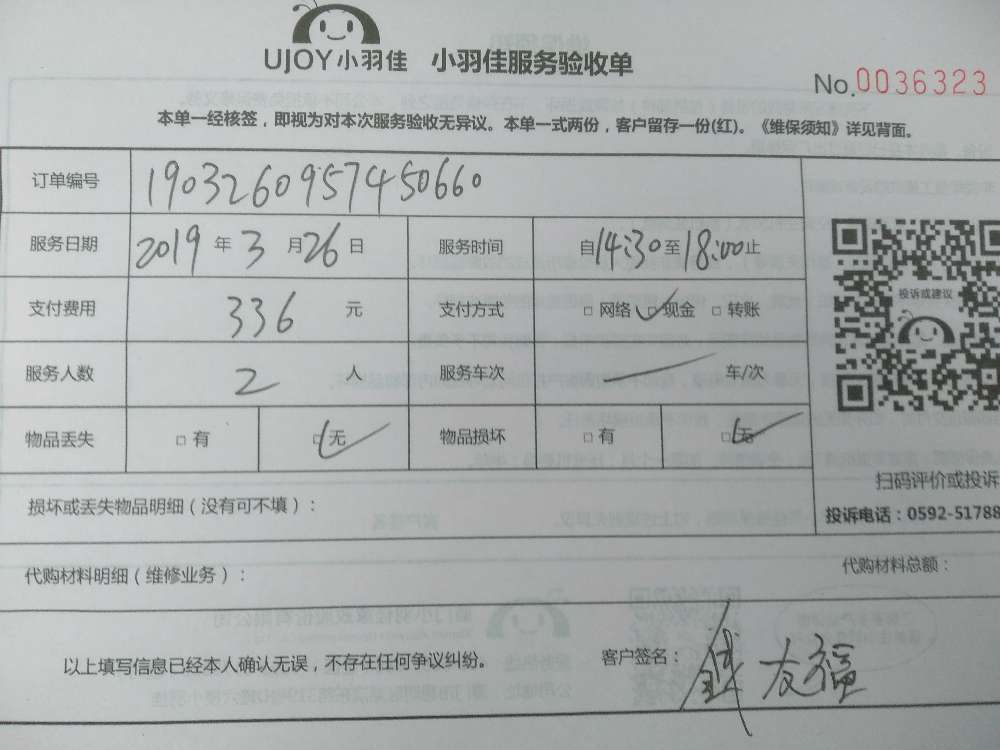 UJOY小羽佳 小羽佳服务验收单
No.0036323
本单一经核签，即视为对本次服务验收无异议。本单一式两份，客户留存一份(红)。《维保须知》详见背面。
订单编号 1903260957450660
服务日期 2019年3月26日 服务时间 自14:30至18:00止
投诉或建议
支付费用 336元 支付方式 □网络 □现金 □转账
服务人数 2人 服务车次 车/次
物品丢失 □有 □无 物品损坏 □有 □无
扫码评价或投诉
损坏或丢失物品明细（没有可不填）：
投诉电话：0592-51788
代购材料明细（维修业务）： 代购材料总额：
以上填写信息已经本人确认无误，不存在任何争议纠纷。 客户签名：钱友福